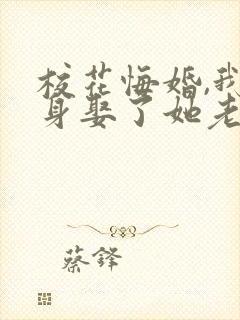 校花悔婚,我
身娶了她老
蔡鋒